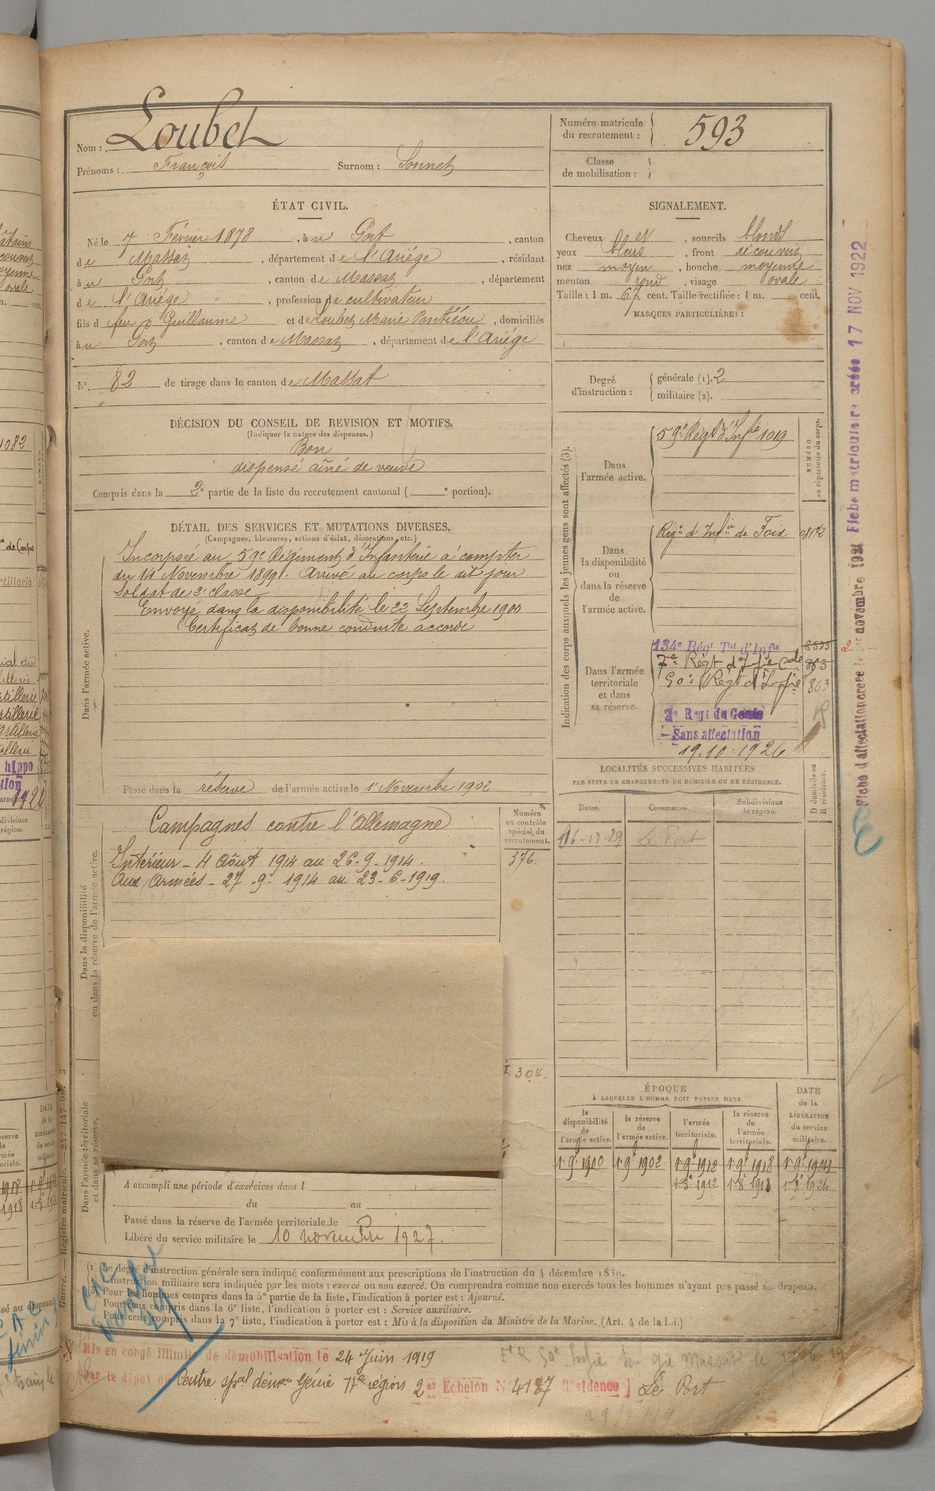 Nom : Loubet
Prénoms : François Surnom : Sonnet
Numéro matricule du recrutement : 593
Classe de mobilisation :
ÉTAT CIVIL.
Né le 7 Février 1878, à u Port, canton
de Massat, département de l'Ariége, résidant
à u Port, canton de Massat, département
de l'Ariége, profession de cultivateur
fils de feu Guillaume et de Loubet Marie, domiciliés
à u Port, canton de Massat, département de l'Ariége
N° 82 de tirage dans le canton de Massat
SIGNALEMENT.
Cheveux et, sourcils blonds
yeux bleus, front découvert
nez moyen, bouche moyenne
menton rond, visage ovale
Taille : 1 m. 67 cent. Taille rectifiée : 1 m. cent.
MARQUES PARTICULIÈRES :
Degré d'instruction : générale (1). 2
militaire (2).
DÉCISION DU CONSEIL DE REVISION ET MOTIFS.
(Indiquer la nature des dispenses.)
Bon
dispensé aîné de veuve
Compris dans la 2e partie de la liste du recrutement cantonal ( e portion).
DÉTAIL DES SERVICES ET MUTATIONS DIVERSES.
(Campagnes, blessures, actions d'éclat, décorations, etc.)
Dans l'armée active.
Incorporé au 59e Régiment d'Infanterie à compter
du 14 Novembre 1899. Arrivé au corps le dit jour
soldat de 2e classe
Envoyé dans la disponibilité le 22 Septembre 1900
Certificat de bonne conduite accordé
Passé dans la réserve de l'armée active le 1er Novembre 1902
Indication des corps auxquels les jeunes gens sont affectés (3).
NUMÉRO au répertoire du corps.
Dans l'armée active.
59e Régt d'Infie 1019
Dans la disponibilité ou dans la réserve de l'armée active.
Régt d'Infie de Foix
Dans l'armée territoriale et dans sa réserve.
134e Régt Tal d'Infie
7e Régt d'Infie Cole
90e Régt d'Infie 863
2e Regt du Génie
Sans affectation
19.10.1926
Dans la disponibilité ou dans la réserve de l'armée active.
Numéro au contrôle spécial du recrutement.
376.
Campagnes contre l'Allemagne
Intérieur - 4 Août 1914 au 26-9-1914.
Aux Armées - 27-9-1914 au 23-6-1919.
304.
LOCALITÉS SUCCESSIVES HABITÉES
PAR SUITE DE CHANGEMENTS DE DOMICILE OU DE RÉSIDENCE.
Dates. Communes. Subdivisions de région. D domicile ou R résidence.
16-12-29 Le Port
ÉPOQUE
À LAQUELLE L'HOMME DOIT PASSER DANS
la disponibilité de l'armée active. la réserve de l'armée active. l'armée territoriale. la réserve de l'armée territoriale. DATE de la LIBÉRATION du service militaire.
1er 9bre 1900 1er 9bre 1902 1er 9bre 1912 1er 9bre 1918 1er 9bre 1924
Dans l'armée territoriale et dans sa réserve.
A accompli une période d'exercices dans l
du au
Passé dans la réserve de l'armée territoriale le
Libéré du service militaire le 10 novembre 1927.
(1) Le degré d'instruction générale sera indiqué conformément aux prescriptions de l'instruction du 4 décembre 1889.
L'instruction militaire sera indiquée par les mots : exercé ou non exercé. On comprendra comme non exercés tous les hommes n'ayant pas passé au drapeau.
Pour les hommes compris dans la 5e partie de la liste, l'indication à porter est : Ajourné.
Pour ceux compris dans la 6e liste, l'indication à porter est : Service auxiliaire.
Pour ceux compris dans la 7e liste, l'indication à porter est : Mis à la disposition du Ministre de la Marine. (Art. 4 de la loi.)
Mis en congé illimité de démobilisation le 24 Juin 1919
par le dépôt du Centre spal démor Génie 17e région 2er Echelon N° 4137 Résidence Le Port
Fiche d'affectation créée le 1er novembre 1921 Fiche matriculaire créée 17 NOV 1922